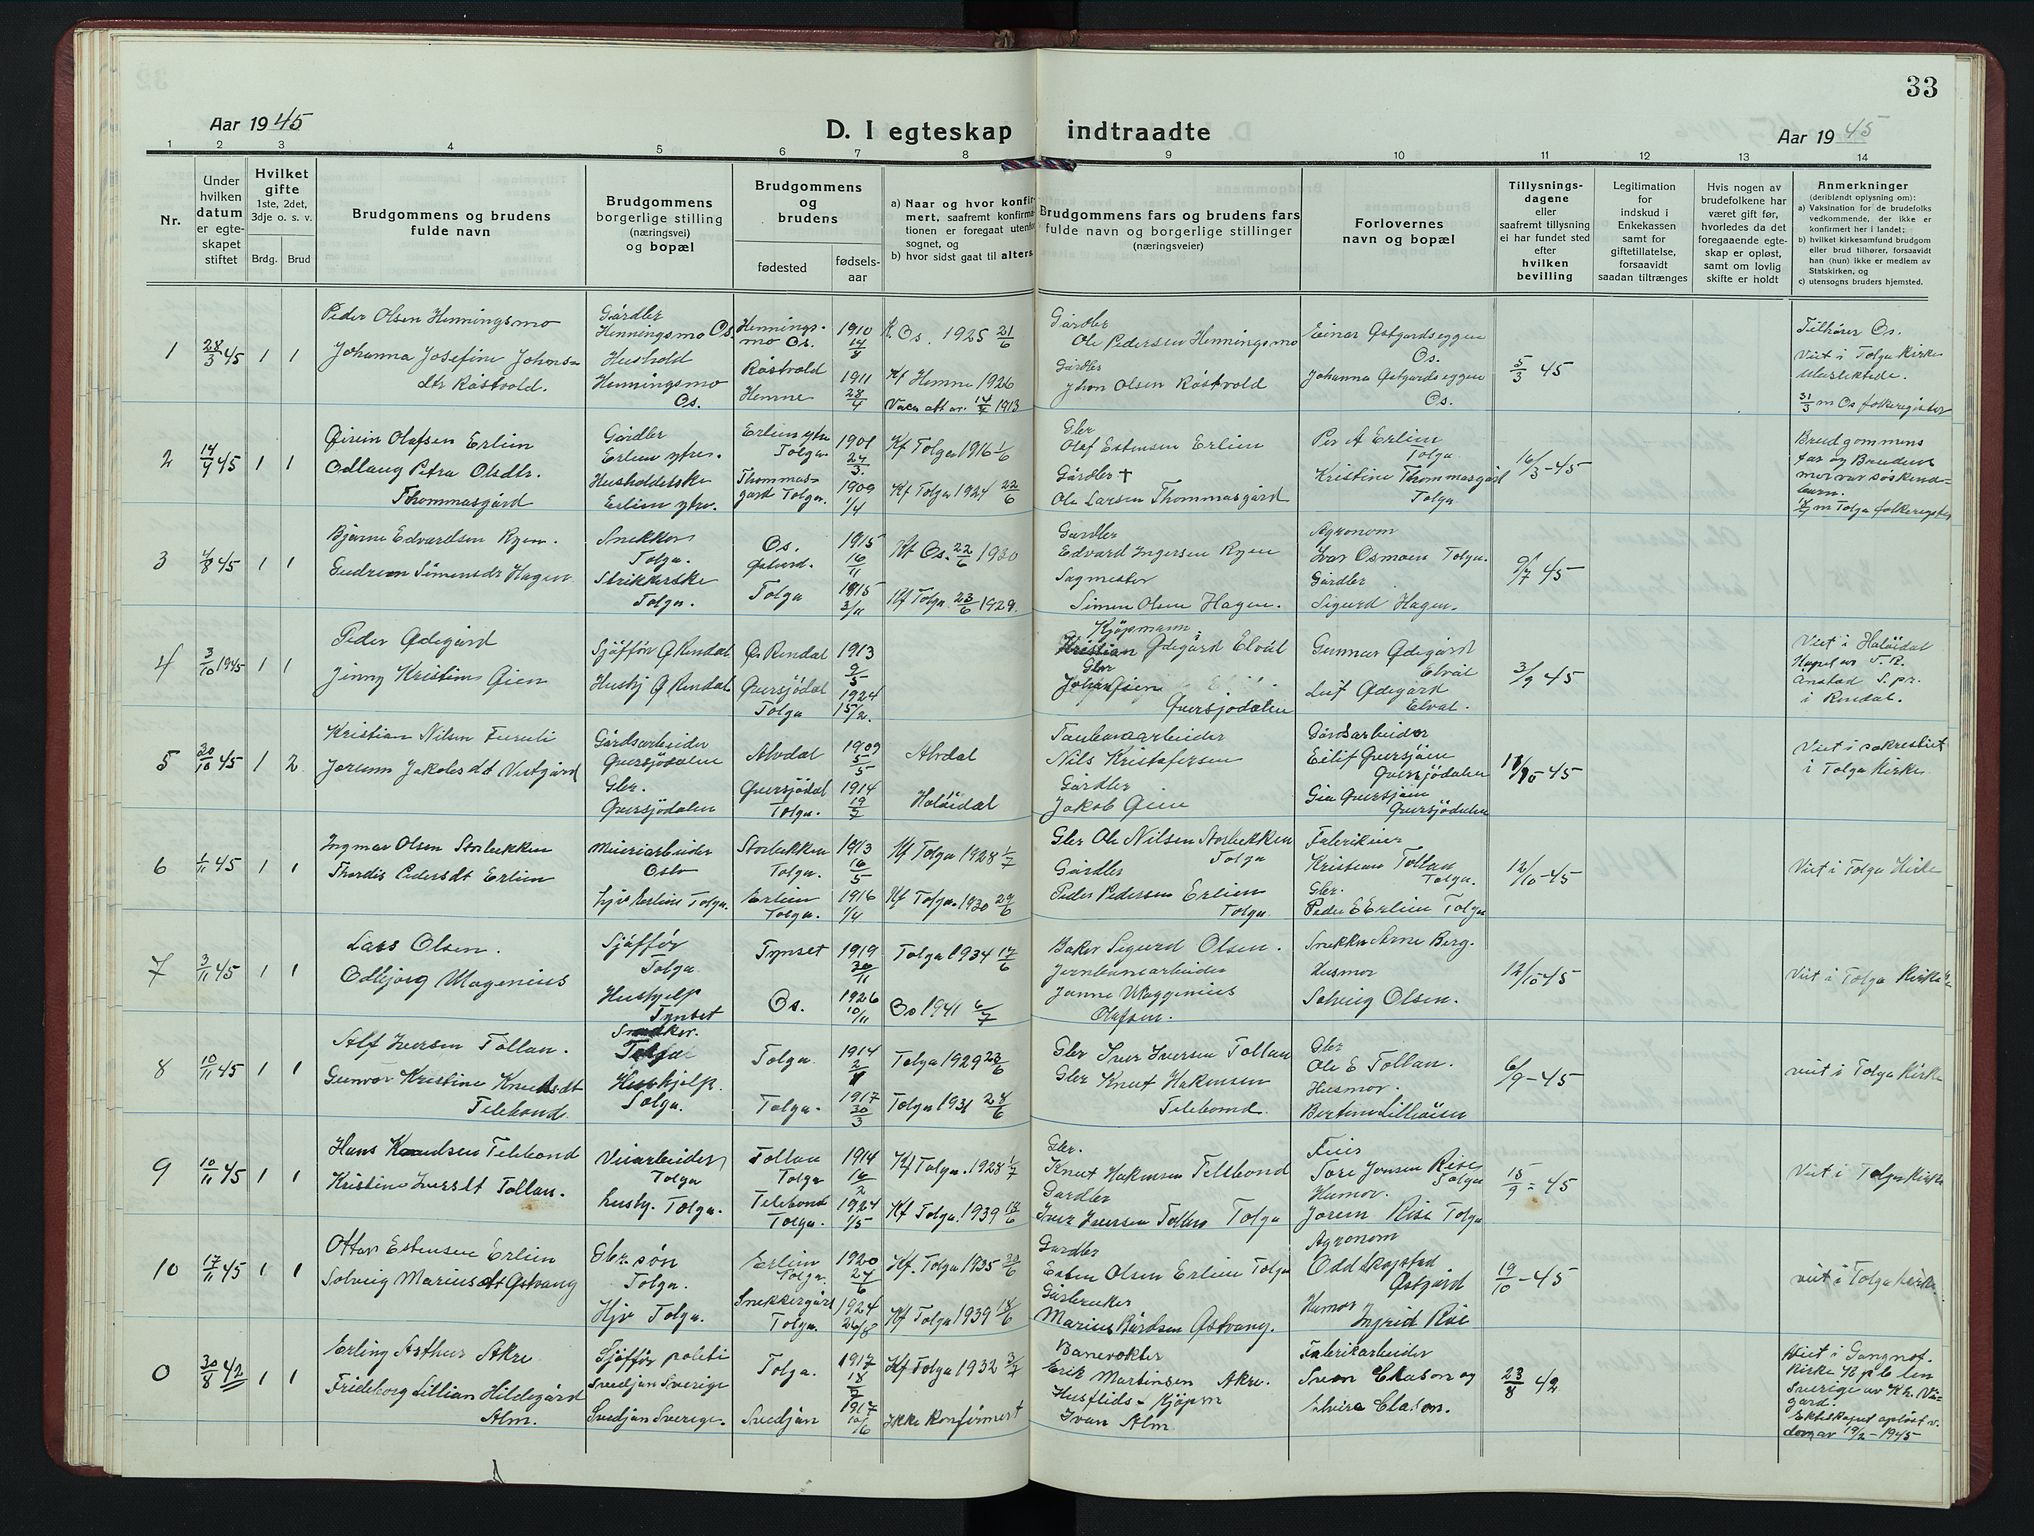 33
Aar 1945
D. I egteskap indtraadte
Aar 1945
1 2 3 4 5 6 7 8 9 10 11 12 13 14
Nr.
Under hvilken datum er egteskapet stiftet
Hvilket gifte 1ste, 2det, 3dje o. s. v.
Brdg. Brud
Brudgommens og brudens fulde navn
Brudgommens borgerlige stilling (næringsvei) og bopæl
Brudgommens og brudens
fødested
fødselsaar
a) Naar og hvor konfirmert, saafremt konfirmationen er foregaat utenfor sognet, og
b) hvor sidst gaat til alters
Brudgommens fars og brudens fars fulde navn og borgerlige stillinger (næringsveier)
Forlovernes navn og bopæl
Tillysningsdagene eller saafremt tillysning ei har fundet sted efter hvilken bevilling
Legitimation for indskud i Enkekassen samt for giftetillatelse, forsaavidt saadan tiltrænges
Hvis nogen av brudefolkene har været gift før, hvorledes da det foregaaende egteskap er opløst, samt om lovlig skifte er holdt
Anmerkninger (deriblandt oplysning om):
a) Vaksination for de brudefolks vedkommende, der ikke er konfirmert her i landet;
b) hvilket kirkesamfund brudgom eller brud tilhører, forsaavidt han (hun) ikke er medlem av Statskirken, og
c) utensogns bruders hjemsted.
1 28/3 45 1 1
Peder Olsen Henningsmo
Johanna Josefine Johnsdtr Råstvold.
Gårdbr Henningsmo Os.
Hushold Henningsmo Os.
Henningsmo Os. 1910 14/8
Råstvold Hemne 1911 28/4
K. Os. 1925 21/6
Kf Hemne 1926
Gårdbr Ole Pedersen Henningsmo
Gårdbr Johan Olsen Råstvold
Einar Østgårdseggen Os.
Johanna Østgårdseggen Os.
5/3 45
Tilhører Os. Viet i Tolga kirke
31/3 m Os folkeregister
2 14/4 45 1 1
Olafsen Erlien
Odlaug Petra Olsdtr. Thommasgård
Gårdbr Erlien ytre.
Erlien ytre.
Erlien ytre Tolga 1901 27/3.
Thommasgård Tolga. 1909 1/4
Kf Tolga 1916 1/6
Kf Tolga 1924 22/6
Gbr Olaf Estensen Erlien
Gårdbr † Ole Larsen Thommasgård
Per A Erlien Tolga
Kristine Thommasgård Tolga
16/3 - 45
Brudgommens far og Brudens mor var søskendebarn.
m Tolga folkeregister
3 4/8 45 1 1
Bjarne Edvardsen Ryen.
Gudrun Simensdr Hagen
Snekker Tolga.
Strikkerske Tolga.
Os. Østerd. 1915 16/11
Tolga 1915 3/11
Kf Os. 22/6 1930
Kf Tolga 23/6 1929.
Gårdbr Edvard Ingersen Ryen
Sagmester Simen Olsen Hagen.
Agronom Ivar Osmoen Tolga.
Gårdbr Sigurd Hagen.
9/7 45
4 3/10 1945 1 1
Peder Ødegård
Jenny Kristine Øien
Sjåffør Ø Rendal
Hushj Ø Rendal
Ø Rendal 1913 9/5
Øversjødal Tolga 1924 15/2.
Kjøpmann Kristian Ødegård Elvål
Gbr Johan Øien Øversjødalen
Gunnar Ødegård Elvål
Leif Ødegård Elvål.
3/9 45
Viet i Holøidal Kapel av S. R. Anstad S. pr. i Rendal.
5 20/10 45 1 2
Kristian Nilsen Furuli
Jorunn Jakobsdt Vestgård
Gårdsarbeider Øversjødalen
Gbr. Øversjødalen
Alvdal 1909 5/5
Øversjødal Tolga. 1914 19/7
Alvdal
Holøidal
Nils Kristofersen
Gårdbr Jakob Øien
Gårdsarbeider Eilif Øversjøen Øversjødalen
Øversjøen Øversjødalen
11/10 - 45
Viet i sakrestiet i Tolga Kirke
6 1/11 45 1 1
Ingmar Olsen Storbekken
Thordis Pedersdt Erlien
Meieriarbeider Oslo
Erlien Tolga.
Storbekken Tolga. 1913 16/5
Erlien Tolga. 1916 1/4
Kf Tolga 1928 1/7
Kf Tolga. 1930 29/6
Gbr Ole Nilsen Storbekken Tolga
Gårdbr Peder Pedersen Erlien Tolga
Fabrikeier Kristian Tollan Tolga.
Gbr. Peder E Erlien Tolga
12/10 - 45
Viet i Tolga Kirke
7 3/11 45 1 1
Lars Olsen.
Odbjørg Magenius
Sjåffør Tolga.
Hushjelp Tynset
Tynset 1919 30/11
Os. 1926 10/11
Tolga 1934 17/6
Os 1941 6/7
Baker Sigurd Olsen.
Jernbanearbeider Janne Olafsen.
Snekker Arne Berg.
Husmor Solveig Olsen.
12/10 45
Viet i Tolga Kirke
8 10/11 45 1 1
Alf Iversen Tollan.
Gunvor Kristine Knudsdt Telebond.
Snekker. Tolga
Hushjelp. Tolga.
Tolga. 1914
Tolga. 1917 30/3
Tolga 1929 23/6
Tolga 1931 28/6
Gbr Iver Iversen Tollan
Gbr Knut Hakensen Telebond.
Gbr Ole E Tollan.
Husmor. Lilleøien
6/9 - 45
viet i Tolga Kirke
9 10/11 45 1 1
Hans Knudsen Telebond
Kristine Iversdt Tollan.
Veiarbeider Tolga
hushj. Tolga.
Tollan Tolga 1914 16/2
Telebond Tolga. 1924 1/5
Kf Tolga. 1928 1/7
Kf Tolga. 1939 18/6
Gbr. Knut Hakensen Telebond
Gardbr Iver Iversen Tollan Tolga
Tore Jonsen Rise Tolga
Husmor. Jorun Rise Tolga
15/9 - 45
Viet i Tolga Kirke
10 17/11 45 1 1
Ottar Estensen Erlien
Solveig Mariusdt Østvang
Gbr. søn Tolga.
Hjv Tolga.
Erlien Tolga. 1920 27/6
Snekkergård Tolga. 1924 26/8
Kf. Tolga 1935 30/6
Kf Tolga 1939 18/6
Gardbr Esten Olsen Erlien Tolga
Marius Bårdsen Østvang.
Agronom Odd Kogstad Østgård
Husmor Ingrid Rise
19/10 - 45
viet i Tolga Kirke.
0 30/8 42 1 1
Erling Arthur Akre
Frideborg Lillian Hildegård Alm.
Sjåffør politi Svedjan Sverige
Svedjan Sverige.
Tolga. 1917 18/7
Svedjan 1917 10/6
Kf Tolga 1932 3/7
Ikke konfirmert
Banevokter Erik Martinsen Akre.
Husflids - Kjøpm Ivan Alm
Fabrikarbeider Sven Clason og
Elvira Clason.
23/8 42
Viet i Gangnef. kirke Sverige
Ekteskapet opløst v. dom av 19/2 - 1945